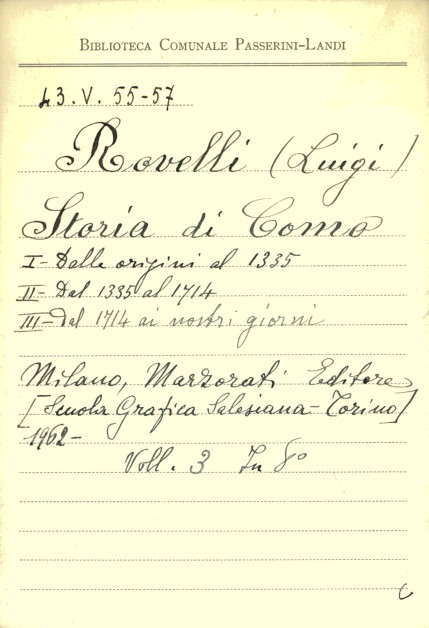 BIBLIOTECA COMUNALE PASSERINI-LANDI
L3.V. 55-57
Rovelli (Luigi)
Storia di Como
I- Dalle origini al 1335
II- Dal 1335 al 1714
III- Dal 1714 ai nostri giorni
Milano, Marzorati Editore
[Scuola Grafica Salesiana - Torino]
1962-
Voll. 3 In 8°
C